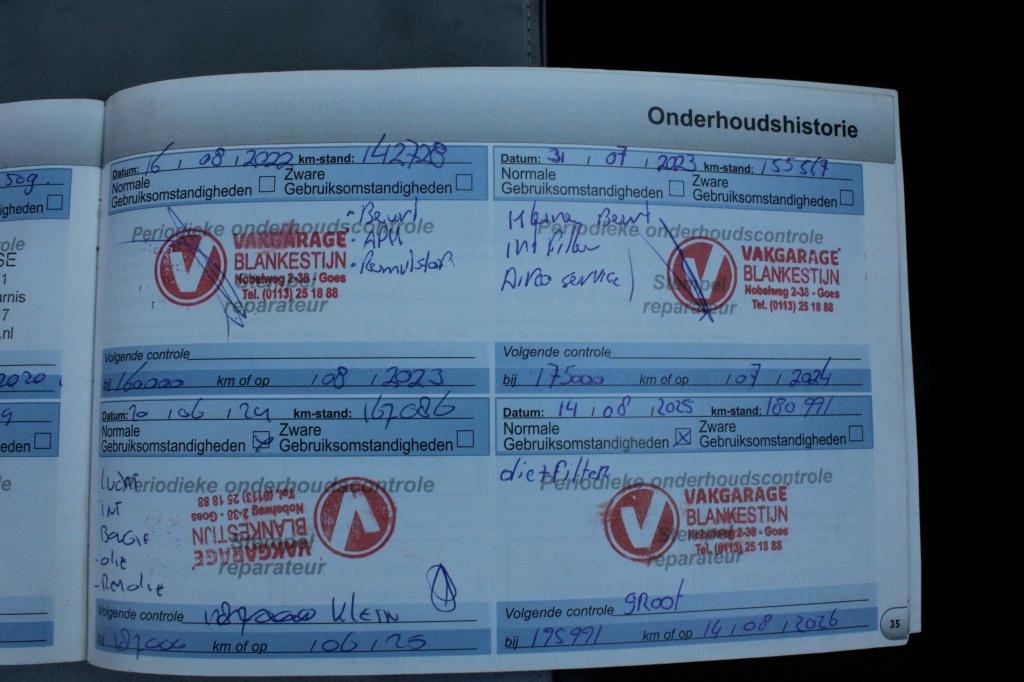 Onderhoudshistorie
50g.
Datum: 16 / 08 / 2022 km-stand: 142728
Normale
Gebruiksomstandigheden
Zware
Gebruiksomstandigheden
Periodieke onderhoudscontrole
- Beurt
- APK
VAKGARAGE
BLANKESTIJN
Nobelweg 2-38 - Goes
Tel. (0113) 25 18 88
Stempel
reparateur
Volgende controle
bij 160000 km of op / 08 / 2023
Datum: 31 / 07 / 2023 km-stand: 155517
Normale
Gebruiksomstandigheden
Zware
Gebruiksomstandigheden
Periodieke onderhoudscontrole
Kleine Beurt
Int filter
Airco service
VAKGARAGE
BLANKESTIJN
Nobelweg 2-38 - Goes
Tel. (0113) 25 18 88
Stempel
reparateur
Volgende controle
bij 175000 km of op / 07 / 2024
Datum: 20 / 06 / 24 km-stand: 167086
Normale
Gebruiksomstandigheden
Zware
Gebruiksomstandigheden
Periodieke onderhoudscontrole
Lucht
INT
BOUGIE
- olie
- Remolie
VAKGARAGE
BLANKESTIJN
Nobelweg 2-38 - Goes
Tel. (0113) 25 18 88
Stempel
reparateur
Volgende controle KLEIN
bij 187000 km of op / 06 / 25
Datum: 14 / 08 / 2025 km-stand: 180991
Normale
Gebruiksomstandigheden
Zware
Gebruiksomstandigheden
Periodieke onderhoudscontrole
olie + filter
VAKGARAGE
BLANKESTIJN
Nobelweg 2-38 - Goes
Tel. (0113) 25 18 88
Stempel
reparateur
Volgende controle groot
bij 195991 km of op 14 / 08 / 2026
35